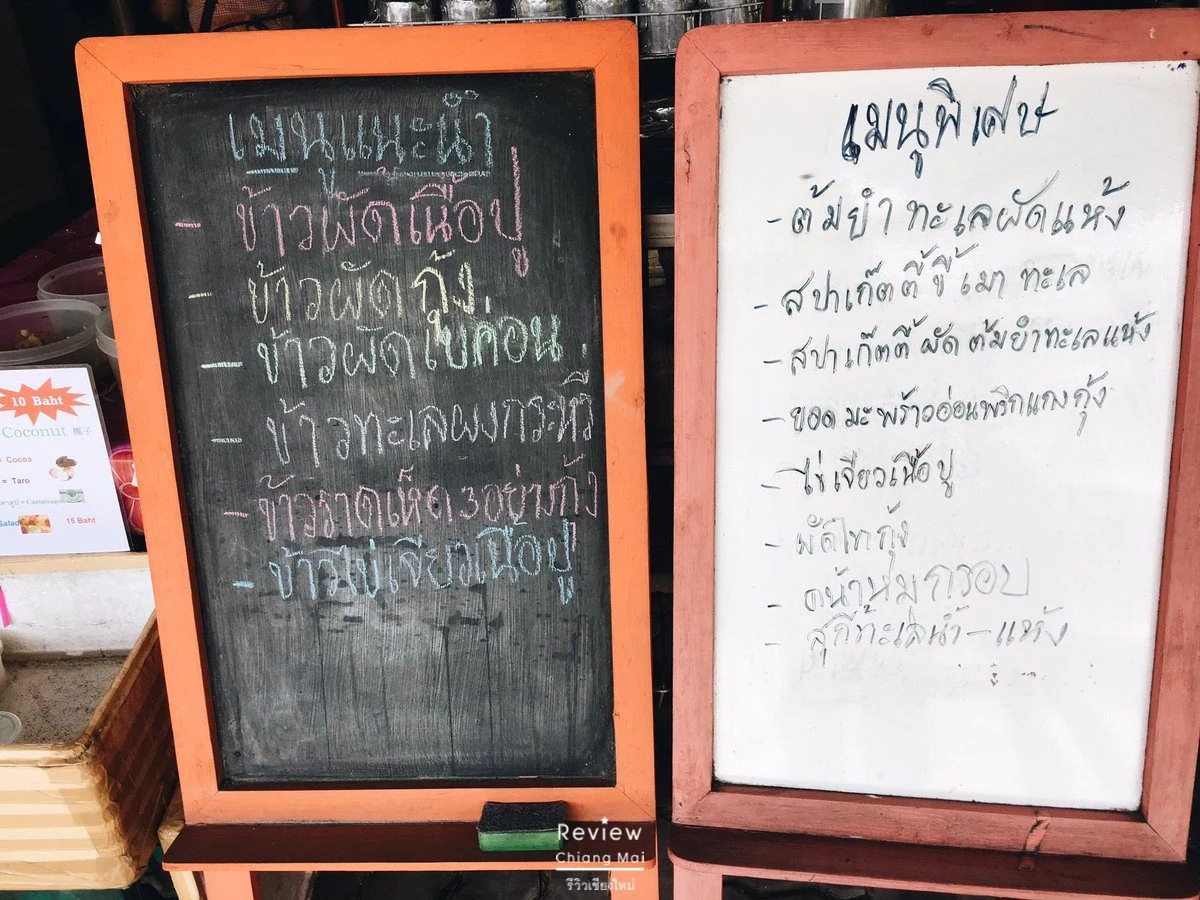 เมนูแนะนำ
- ข้าวผัดเนื้อปู
- ข้าวผัดกุ้ง
- ข้าวผัดไข่ค่อน
- ข้าวทะเลผงกระหรี่
- ข้าวราดเห็ด 3 อย่างกุ้ง
- ข้าวไข่เจียวเนื้อปู
เมนูพิเศษ
- ต้มยำทะเลผัดแห้ง
- สปาเก๊ตตี้ขี้เมาทะเล
- สปาเก๊ตตี้ผัดต้มยำทะเลแห้ง
- ยอดมะพร้าวอ่อนพริกแกงกุ้ง
- ไข่เจียวเนื้อปู
- ผัดไทกุ้ง
- หมกรอบ
- สุกี้ทะเลน้ำ-แห้ง
10 Baht
Coconut 椰子
= Cocoa
= Taro
= Cantaloupe
Salad 15 Baht
Review
Chiang Mai
รีวิวเชียงใหม่